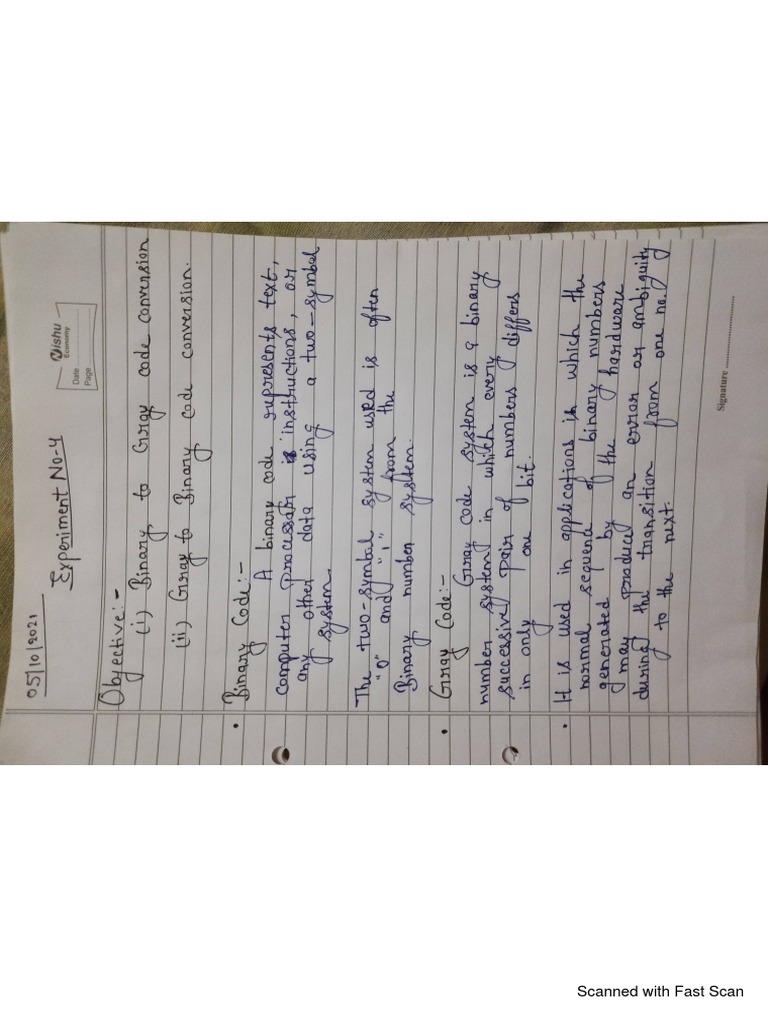 05/10/2021
Nishu
Economy
Date
Page
Experiment No-4
Objective:-
(i) Binary to Gray code conversion
(ii) Gray to Binary code conversion.
• Binary Code:-
A binary code represents text,
computer processor instructions, or
any other data using a two-symbol
system.
The two-symbol system used is often
"0" and "1" from the
Binary number system.
• Gray Code:-
Gray code system is a binary
number system in which every
successive pair of numbers differs
in only one bit.
• It is used in applications in which the
normal sequence of binary numbers
generated by the hardware
may produce an error or ambiguity
during the transition from one no.
to the next.
Signature
Scanned with Fast Scan